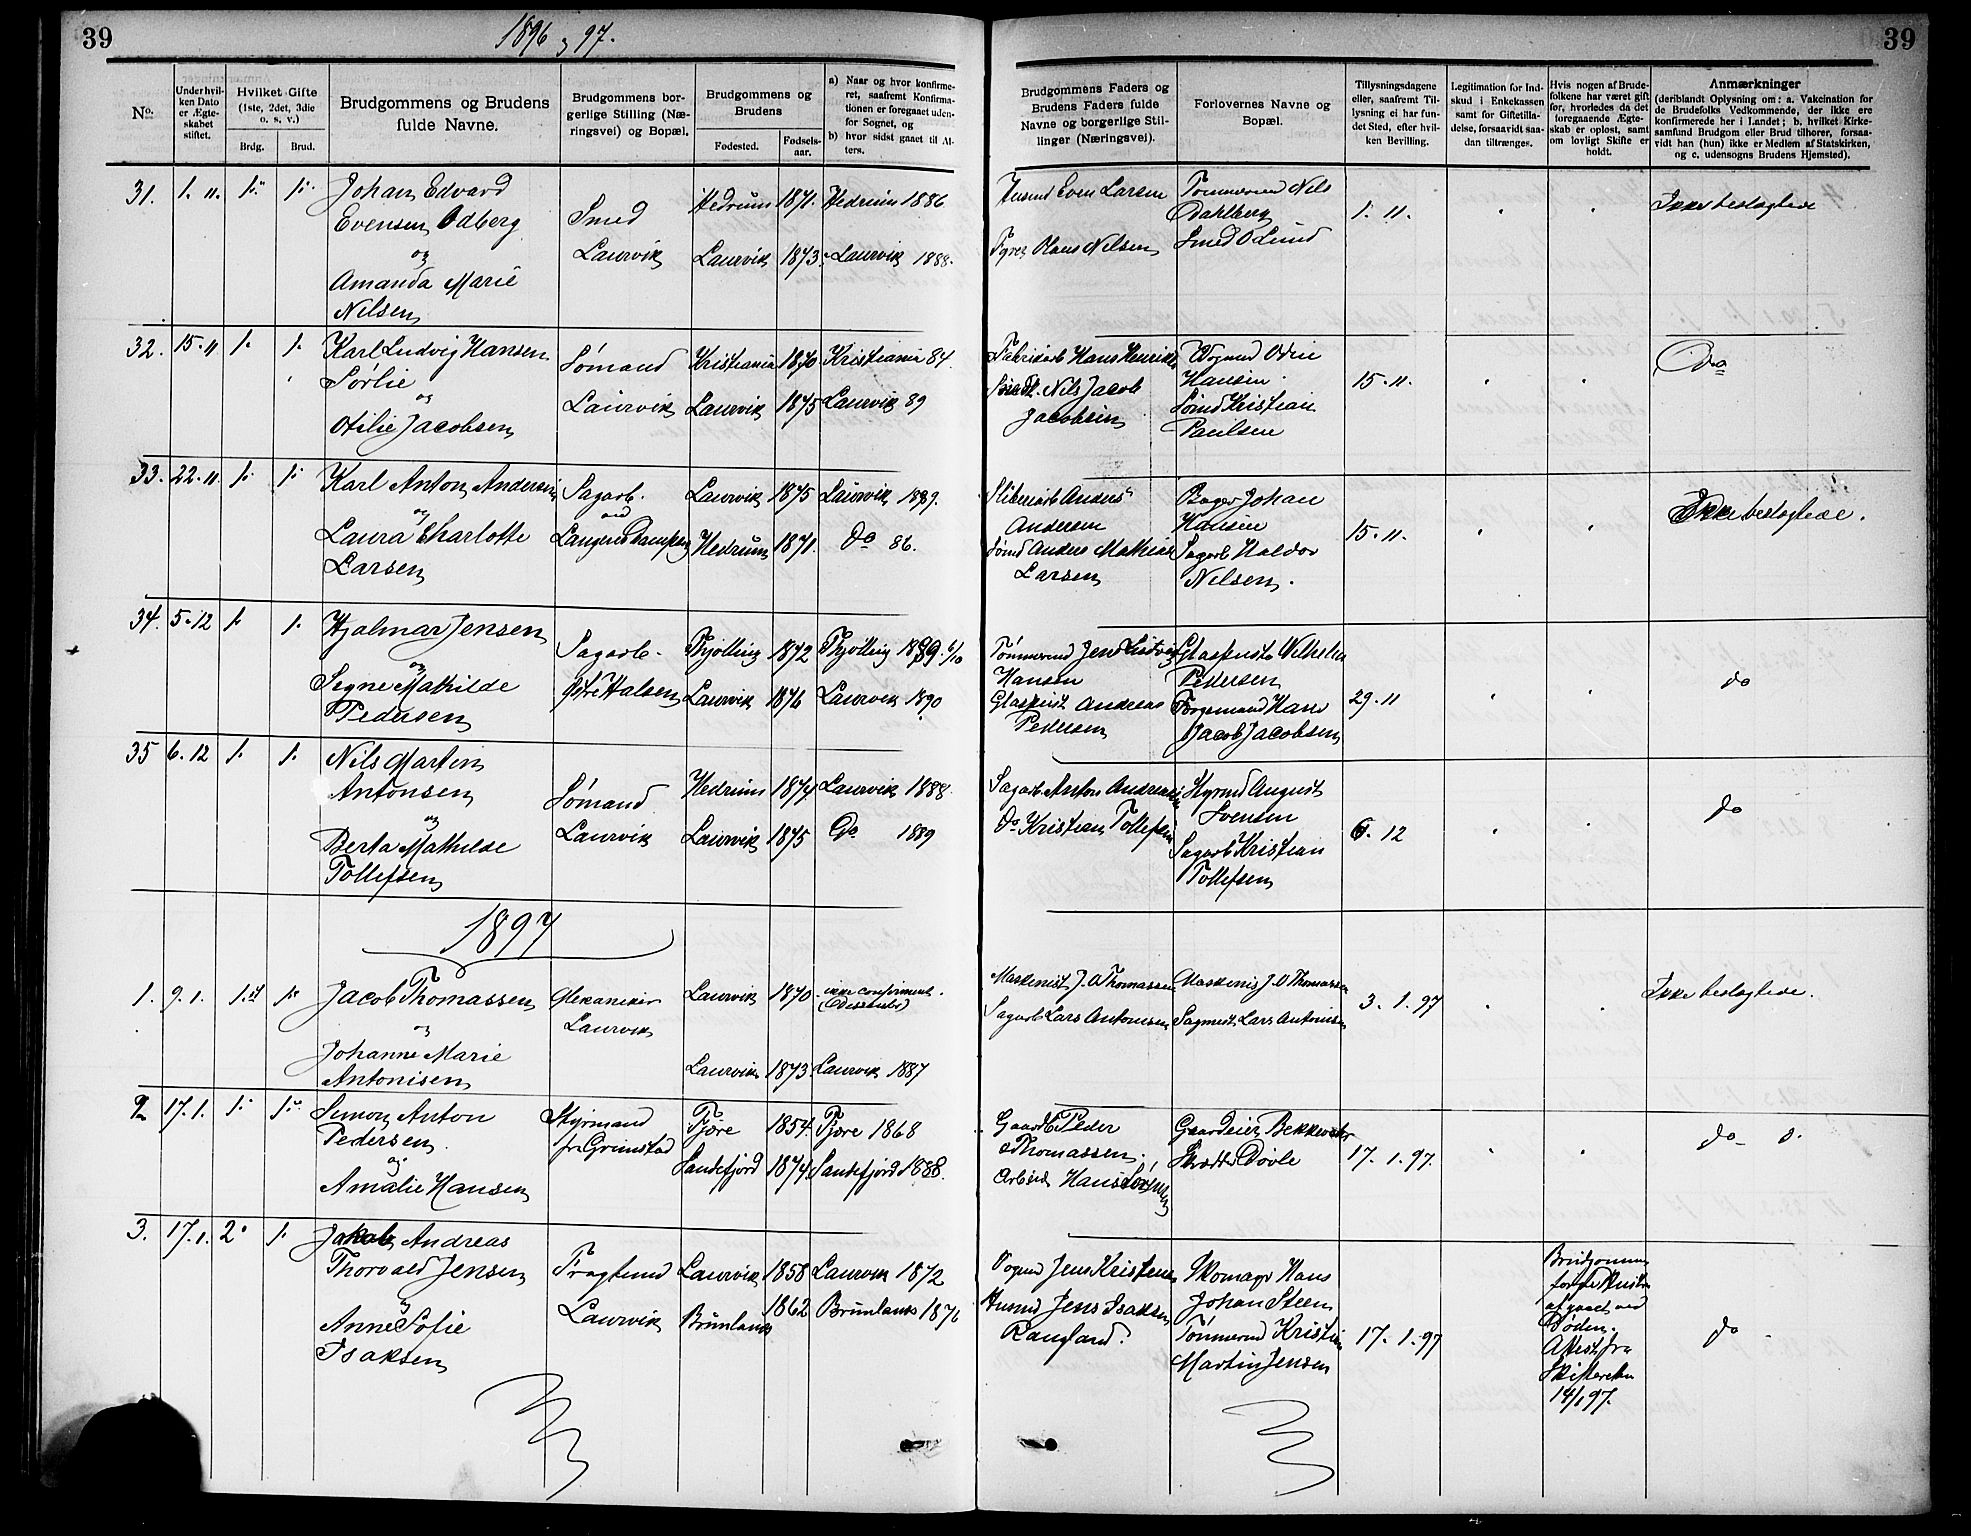 39
1896 og 97.
39
No.
Under hvil-
ken Dato
er Ægte-
skabet
stiftet.
Hvilket Gifte
(1ste, 2det, 3die
o. s. v.)
Brdg.
Brud.
Brudgommens og Brudens
fulde Navne.
Brudgommens bor-
gerlige Stilling (Næ-
ringsvei) og Bopæl.
Brudgommens og
Brudens
Fødested.
Fødsels-
aar.
a) Naar og hvor konfirme-
ret, saafremt Konfirma-
tionen er foregaaet uden-
for Sognet, og
b) hvor sidst gaaet til Al-
ters.
Brudgommens Faders og
Brudens Faders fulde
Navne og borgerlige Stil-
linger (Næringsvei).
Forlovernes Navne og
Bopæl.
Tillysningsdagene
eller, saafremt Til-
lysning ei har fun-
det Sted, efter hvil-
ken Bevilling.
Legitimation for Ind-
skud i Enkekassen
samt for Giftetilla-
delse, forsaavidt saa-
dan tiltrænges.
Hvis nogen af Brude-
folkene har været gift
før, hvorledes da det
foregaaende Ægte-
skab er opløst, samt
om lovligt Skifte er
holdt.
Anmærkninger
(deriblandt Oplysning om: a. Vakcination for
de Brudefolks Vedkommende, der ikke ere
konfirmerede her i Landet; b. hvilket Kirke-
samfund Brudgom eller Brud tilhører, forsaa-
vidt han (hun) ikke er Medlem af Statskirken,
og c. udensogns Brudens Hjemsted).
31. 1. 11. 1. 1.
Johan Edvard
Evensen Odberg
og
Amanda Marie
Nilsen
Smed
Laurvik
Hedrum 1871. Hedrum 1886
Laurvik 1873. Laurvik 1888.
Husmd Even Larsen
Fyrb Olaus Nilsen
Tømmermd Nils
Dahlberg
Smed O Lund
1. 11.
Ikke beslægtede
32. 15. 11 1. 1.
Karl Ludvig Hansen
Sørlie
og
Otilie Jacobsen
Sømand
Laurvik
Kristiania 1870 Kristiania 84.
Laurvik 1875 Laurvik 89
Fabrikarb Hans Henriks
Nils Jacob
Jacobsen
Vognmd Odin
Hansen
Sømd Kristian
Paulsen
15. 11.
Do
33. 22. 11. 1. 1.
Karl Anton Andersen
og
Laura Charlotte
Larsen
Sagarb.
ved
Laurvik 1875 Laurvik 1889.
Hedrum 1871. Do 86.
Sliberiarb Anders
Andersen
Sømd Anders Mathias
Larsen
Bager Johan
Hansen
Sagarb Haldor
Nilsen.
15. 11.
Ikke beslægtede.
34. 5. 12 1. 1.
Hjalmar Jensen
og
Signe Mathilde
Pedersen
Sagarb.
Østre Halsen
Thjølling 1872 Thjølling 1889. 6/10
Laurvik 1876 Laurvik 1890
Tømmermd Jens Ludvig
Hansen
Glaspust Andreas
Pedersen
Glaspuster Vilhelm
Pedersen
Hans
Jacob Jacobsen
29. 11
do
35 6. 12 1. 1.
Nils Martin
Antonsen
og
Berta Mathilde
Tollefsen
Sømand
Laurvik
Hedrum 1874 Laurvik 1888.
Laurvik 1875 Do 1889
Sagarb Anton Andersen
Do Kristian Tollefsen
Styrmd August
Svensen
Sagarb Kristian
Tollefsen
6. 12
do
1897
1. 9. 1. 1. 1.
Jacob Thomassen
og
Johanne Marie
Antonisen
Mekaniker
Laurvik
Laurvik 1870. ikke confirmeret.
(Dissenter)
Laurvik 1873. Laurvik 1887
Maskinist J. O Thomassen
Sagarb Lars Antonisen
Maskinist J. O Thomassen
Sagmest Lars Antonisen
3. 1. 97
Ikke beslægtede.
2 17. 1. 1. 1.
Simon Anton
Pedersen.
og
Amalie Hansen
Styrmand
fra Grimstad
Tjøre 1854. Tjøre 1868
Sandefjord 1874. Sandefjord 1888.
Gaardb Peder
Thomassen.
Arbeid Hans Sørensen
Gaardeier Bekkevoter
Skrædder Døvle
17. 1. 97.
do
3. 17. 1. 2. 1.
Jakob Andreas
Thorvald Jensen
og
Anne Sofie
Isaksen
Fragtmd
Laurvik
Laurvik 1858 Laurvik 1872
Brunlanes 1862 Brunlanes 1876
Vognmd Jens Kristensen
Husmd Jens Isaksen
Rangland.
Skomager Hans
Johan Steen
Tømmermd Kristian
Martin Jensen
17. 1. 97
Brudgommens
forrige Hustru
afgaaet ved
Døden.
Attest fra
Skifteretten
14/1 97.
do